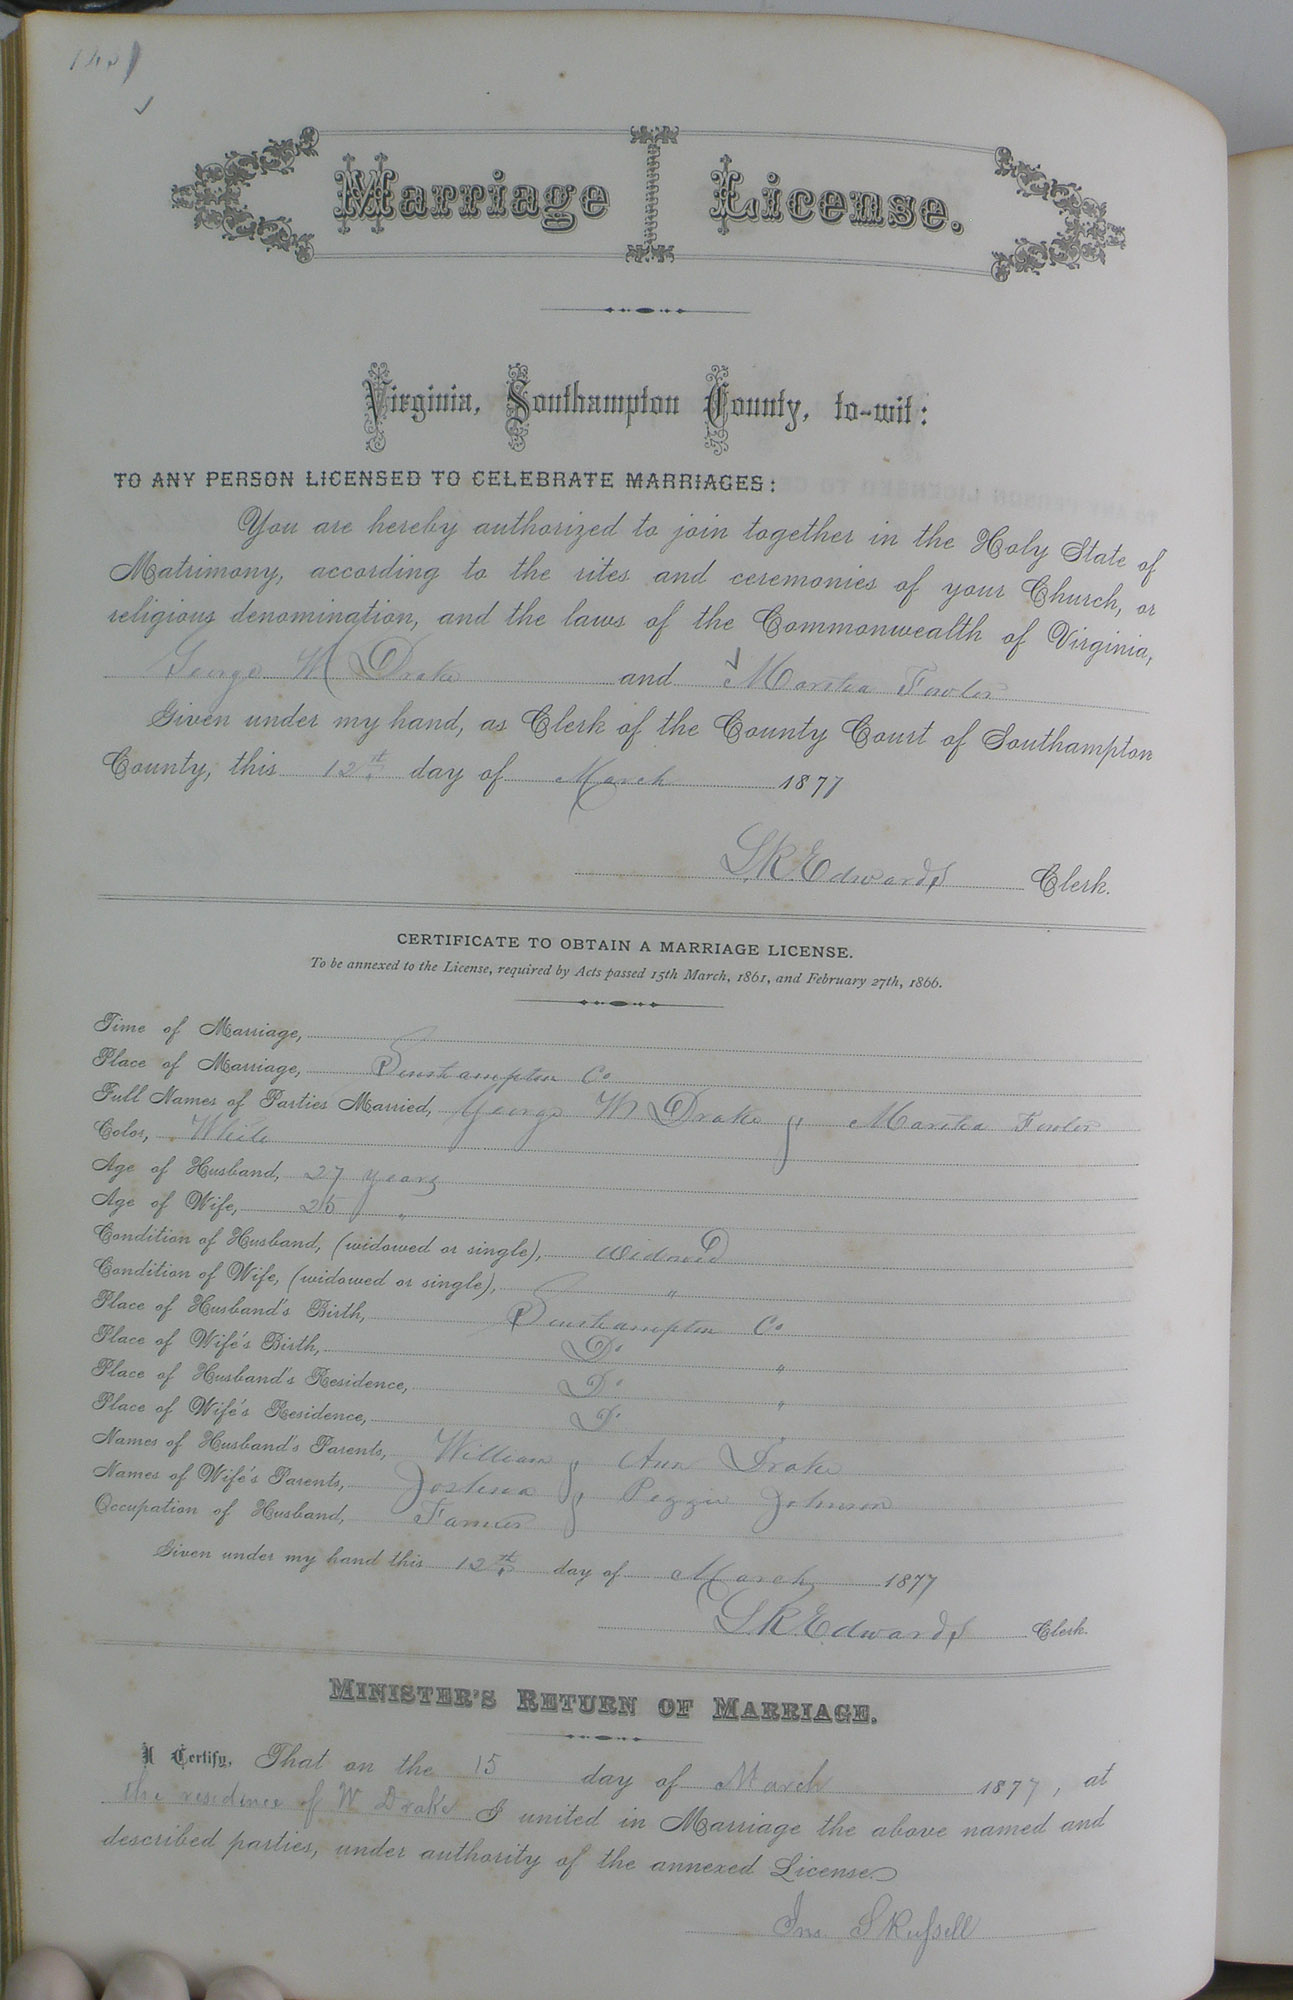 Marriage License.
Virginia, Southampton County, to-wit:
TO ANY PERSON LICENSED TO CELEBRATE MARRIAGES:
You are hereby authorized to join together in the Holy State of
Matrimony, according to the rites and ceremonies of your Church, or
religious denomination, and the laws of the Commonwealth of Virginia,
George W Drake and Martha Fowler
Given under my hand, as Clerk of the County Court of Southampton
County, this 12th day of March 1877
L.R. Edwards Clerk.
CERTIFICATE TO OBTAIN A MARRIAGE LICENSE.
To be annexed to the License, required by Acts passed 15th March, 1861, and February 27th, 1866.
Time of Marriage,
Place of Marriage, Southampton Co
Full Names of Parties Married, George W Drake & Martha Fowler
Color, White
Age of Husband, 27 years
Age of Wife, 25 "
Condition of Husband, (widowed or single), Widowed
Condition of Wife, (widowed or single), "
Place of Husband's Birth, Southampton Co
Place of Wife's Birth, Do "
Place of Husband's Residence, Do "
Place of Wife's Residence, Do "
Names of Husband's Parents, William & Ann Drake
Names of Wife's Parents, Joshua & Peggie Johnson
Occupation of Husband, Farmer
Given under my hand this 12th day of March 1877
L.R. Edwards Clerk.
MINISTER'S RETURN OF MARRIAGE.
I Certify, That on the 15 day of March 1877, at
the residence of W Drake I united in Marriage the above named and
described parties, under authority of the annexed License.
Jno. S Russell